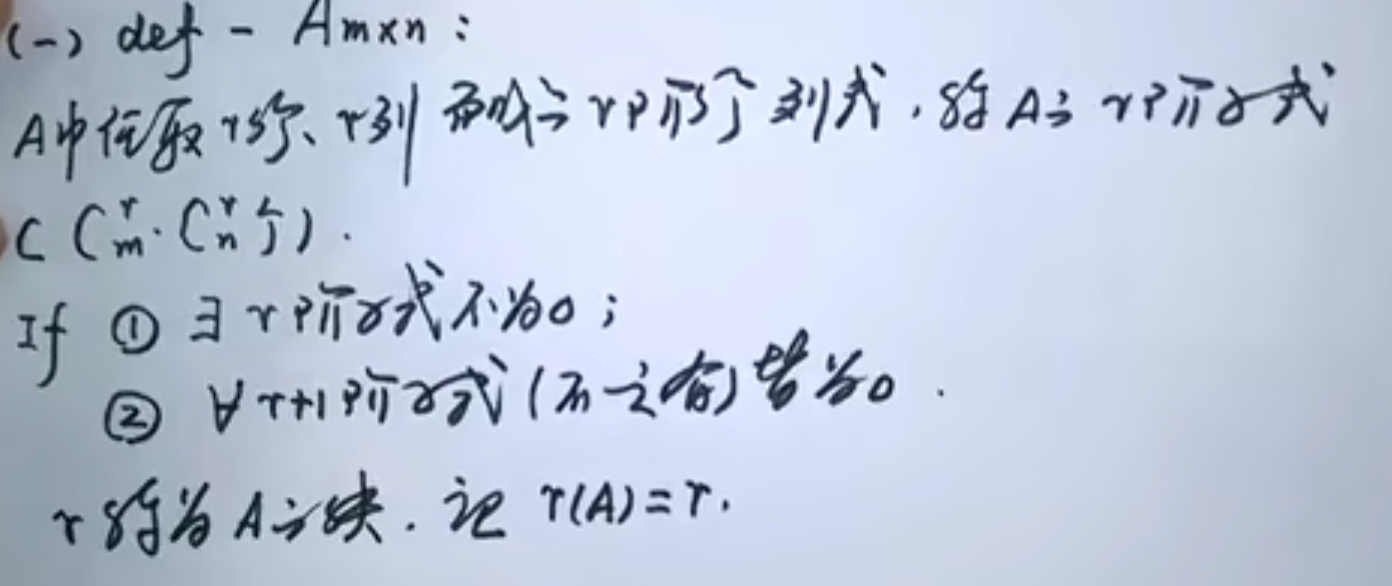 (一) def - Aₘₓₙ:
A中任取r行、r列而成之r阶行列式,称A之r阶子式
(Cₘʳ·Cₙʳ个).
If ① ∃ r阶子式不为0;
② ∀ r+1阶子式(不一定有)皆为0.
r称为A之秩.记 r(A)=r.